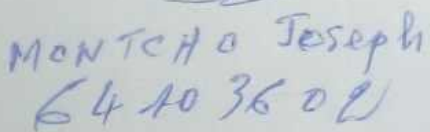 MONTCHO Joseph
64 10 36 02